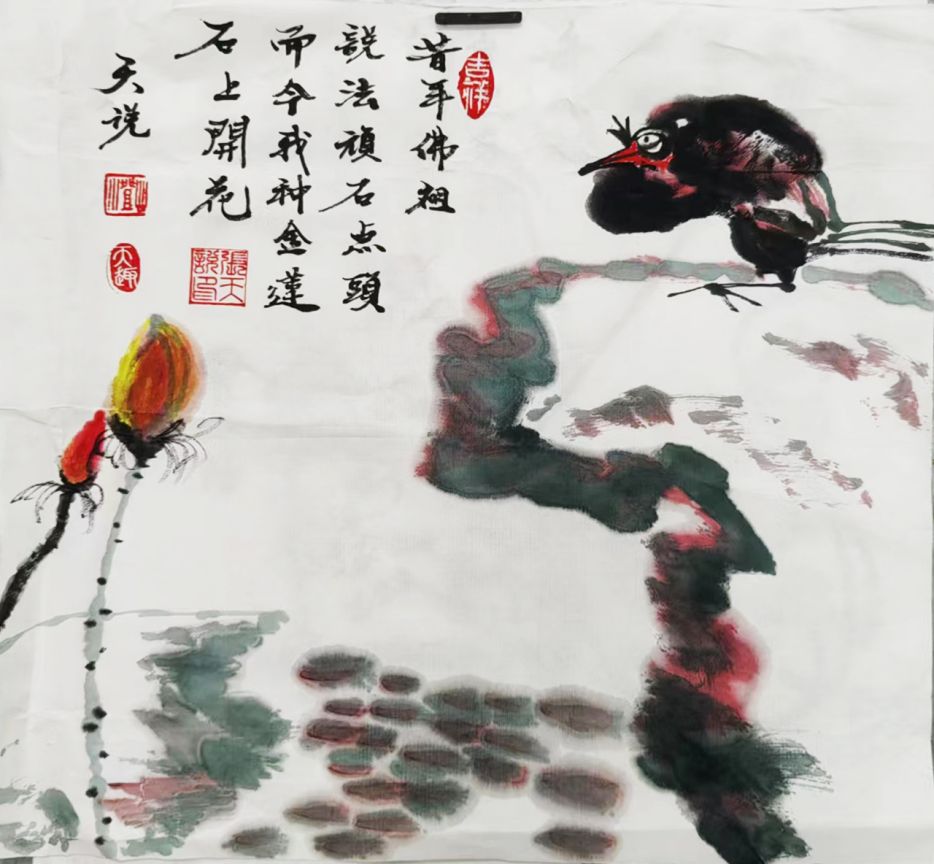 吉祥
昔年佛祖
説法頑石点頭
而今我种金蓮
石上開花
張天説印
天说
天趣